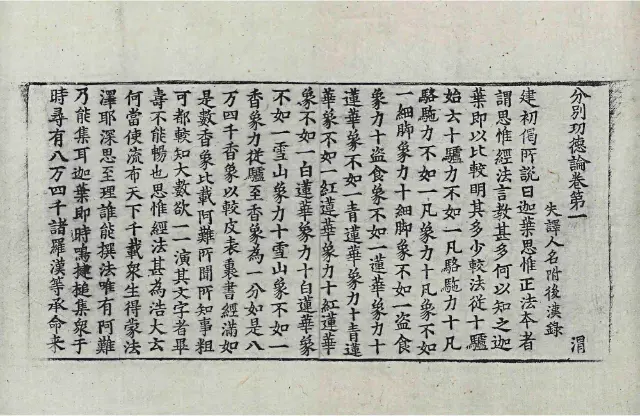 分別功德論卷第一
失譯人名附後漢錄　渭
建初偈所說曰迦葉思惟正法本者
謂思惟經法言教甚多何以知之迦
葉即以比較明其多少較法從十驢
始云十驢力不如一凡駱駞力十凡
駱駞力不如一凡象力十凡象不如
一細脚象力十細脚象不如一盜食
象力十盜食象不如一蓮華象力十
蓮華象不如一青蓮華象力十青蓮
華象不如一紅蓮華象力十紅蓮華
象不如一白蓮華象力十白蓮華象
不如一雪山象力十雪山象不如一
香象力從驢至香象為一分如是八
万四千香象以較皮表裏書經滿如
是數香象比載阿難所聞所知事粗
可都較知大數欲一一演其文字者畢
壽不能暢也思惟經法甚為浩大云
何當使流布天下千載眾生得蒙法
澤耶深思至理誰能撰法唯有阿難
乃能集耳迦葉即時鳴揵槌集眾于
時尋有八万四千諸羅漢等承命來